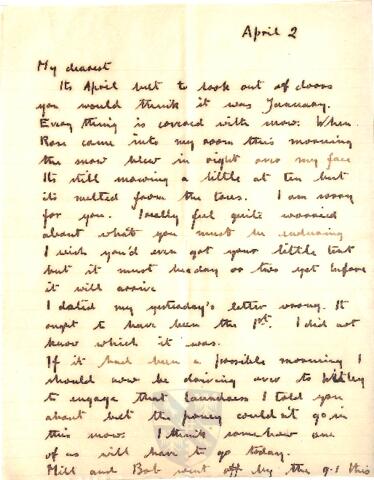 April 2
My dearest
Its April but to look out of doors
you would think it was January.
Every thing is covered with snow. When
Rose came into my room this morning
the snow blew in right over my face
Its still snowing a little at ten but
its melted from the trees. I am sorry
for you. I really feel quite worried
about what you must be enduring
I wish you'd even got your little tent
but it must be a day or two yet before
it will arrive
I dated my yesterday's letter wrong. It
ought to have been the 1st. I did not
know which it was.
If it had been a possible morning I
should now be driving over to
to engage that laundress I told you
about but the poney couldn't go in
this snow. I think somehow one
of us will have to go today.
Mill and Bob went off by the 9.1 this